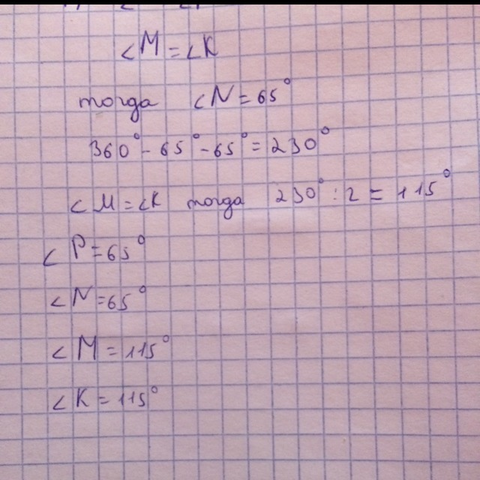 ∠M=∠K
тогда ∠N=65°
360°-65°-65°=230°
∠M=∠K тогда 230°:2=115°
∠P=65°
∠N=65°
∠M=115°
∠K=115°